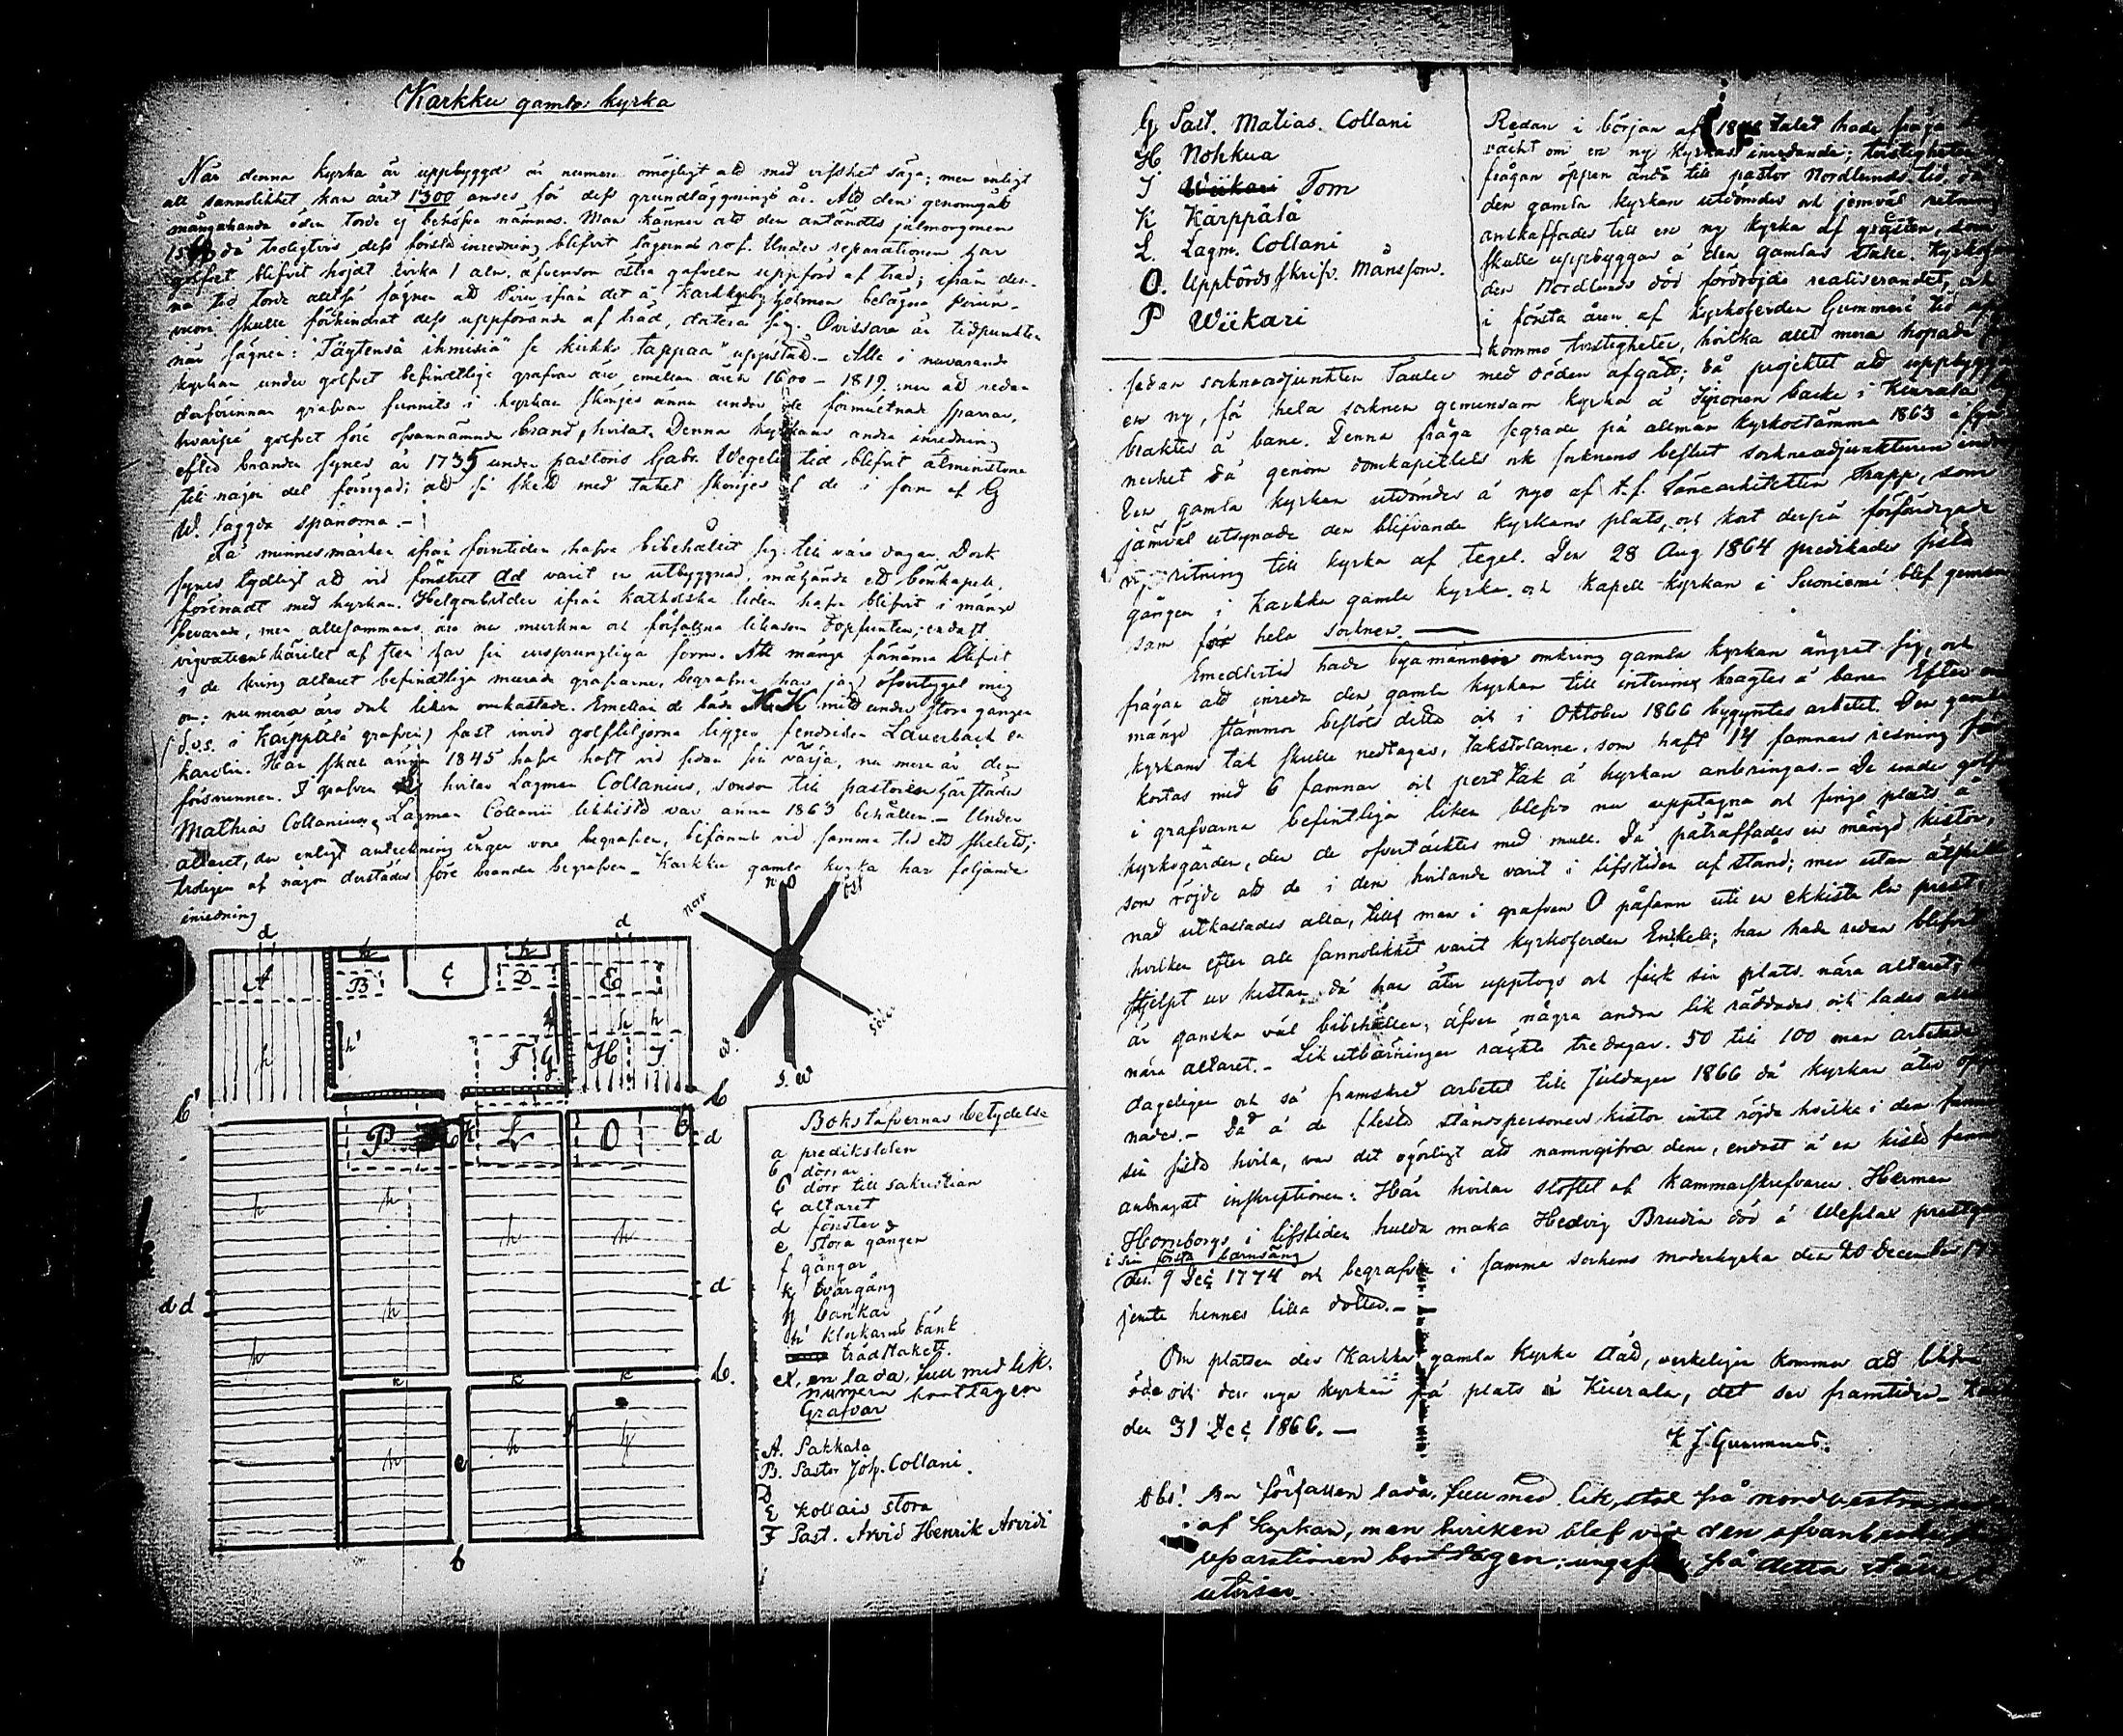 Karkku gamla kyrka
När denna kyrka är uppbyggd är numera omöjligt att med visshet säga; men enligt
all sannolikhet kan året 1300 anses för dess grundläggnings år. Att den genomgått
mångahanda öden torde ej behöfva nämnas. Man känner att den antändts julmorgonen
då troligtvis dess första inredning blifvit lågornas rof. Under reparationen har
golfvet blifvit höjdt cirka 1 aln, äfvensom östra gafveln uppförd af träd; ifrån den-
na tid torde alltså sägnen att Piru ifrån det å Karkkuby holmen belägna
skulle förhindrat dess uppförande af träd, datera sig. Ovissare är tidpunkten
när sägnen: "Täytensä ihmisiä" se kirkko tappaa" uppstått. Alla i nuvarande
kyrkan under golfvet befindtliga grafvar äro emellan åren 1600 - 1819; men att redan
derförinnan grafvar funnits i kyrkan skönjes ännu under de förmultnade sparrar,
hvarpå golfvet före ofvannämnde brand, hvilat. Denna kyrkans andra inredning
efter branden synes år 1735 under pastoris Gabr. Wegelii tid blifvit åtminstone
till någon del försiggått; att så skett med taket skönjes af de i form af G
W. lagda spånorna.-
Få minnesmärken ifrån forntiden hafva bibehållit sig till våra dagar. Dock
synes tydligt att vid fönstret dd varit en utbyggnad, måhända ett bönkapell,
förenadt med kyrkan. Helgonbilder ifrån katholska tiden hafva blifvit i mängd
bevarade, men allesammans äro nu murkna och förfallna likasom dopfunten; endast
vigvattenskärilet af sten har sin ursprungliga form. Att många förnäma blifvit
i de kring altaret befindtliga murade grafvarne, begrafne har jag öfvertygat mig
om; numera äro dock liken omkastade. Emellan de båda K K midt under stora gången
(d.v.s. i Karppälä grafven) fast invid golftiljorna ligger fendriken Lauerbach en
karolin. Han skall ännu 1845 hafva haft vid sidan sin värja, nu mera är den
försvunnen. I grafven L hvilar Lagman Collanius, sonson till pastorn härstädes
Mathias Collanius. Lagman Collanii likkista var ännu 1863 behållen.- Under
altaret, der enligt anteckning ingen vore begrafven, befanns vid samma tid ett skelett,
troligen af någon derstädes före branden begrafven.- Karkku gamla kyrka har följande
inredning
norr
N O
öst
söder
S. W
d
d
A
h
B
h
C
h
D
E
h
h
h'
h
F
G
H
I
b'
b
P
L
O
b
d
h
h
h
h
d
dd
h
h
b.
K
K
K
h
e
h
b
Bokstäfvernas betydelse
a predikstolen
b dörrar
b' dörr till sakristian
ç altaret
d fönster
e stora gången
f gångar
k tvärgång
h bänkar
h' klockarens bänk
trädstakett.
x, en lada, full med lik.
numera borttagen
Grafvar
A. Pakkala
B. Pastor Joh. Collani.
D
E Kollais stora
F Past. Arvid Henrik Arvidi
G Past. Matias. Collani
H Nohkua
I Wiikari Tom
K Kärppälä
L. Lagm. Collani
O. Uppbörds skrifv. Månsson.
P Wiikari
Redan i början af 18 talet hade fråga
väckt om en ny kyrkas inredande;
frågan öppen ända till pastor Nordlunds tid, då
den gamla kyrkan utdömdes och jemväl ritning
anskaffades till en ny kyrka af gråsten, som
skulle uppbyggas å den gamlas ställe. Kyrkoher
den Nordlunds död fördröjde realiserandet, och
i första åren af kyrkoherden Gummeri tid upp
kommo tvistigheter, hvilka allt mera hopade
sedan socknéadjunkten Tauler med döden afgått; då projektet att uppbygga
en ny, för hela socknen gemensam kyrka å backe i Kiurala
braktes å bane. Denna fråga segrade på allmän kyrkostämma 1863
medhet då genom domkapitlets och socknens beslut socknéadjunkturen
Den gamla kyrkan utdömdes å nyo af t.f. Länearkitekten Trapp, som
jämväl utsynade den blifvande kyrkans plats, och kort derpå förfärdigade
ritning till kyrka af tegel. Den 28 Aug 1864 predikades sista
gången i Karkku gamla kyrka. och kapell-kyrkan i Suoniemi blef gemen
sam för hela socknen.
Emedlertid hade byamännen omkring gamla kyrkan ångrat sig, och
frågan att inreda den gamla kyrkan till interims bragtes å bane. Efter
mångs stämmor beslöts detta och i Oktober 1866 begyntes arbetet. Den gamla
kyrkans tak skulle nedtagas, takstolarne, som haft 14 famnars resning
kortas med 6 famnar och pert tak å kyrkan anbringas.- De under golf
i grafvarna befintliga liken blefvo nu upptagna och fingo plats å
kyrkogården, der de ofvertäcktes med mull. Då påträffades en mängd kistor,
som röjde att de i den hvilande varit i lifstiden af stånd; men utan åtskill
nad utkastades alla, tills man i grafven O påfann uti en ekkista en prest,
hvilken efter all sannolikhet varit kyrkoherden Enskeli; han hade redan blifvit
stjelpt ur kistan, då han åter upptogs och fick sin plats nära altaret;
är ganska väl bibehållen; äfven några andra lik räddades och lades
nära altaret.- Lik utbärningen räckte tre dagar. 50 till 100 man arbetade
dageligen och så framskred arbetet till Juldagen 1866 då kyrkan åter
nades.- Då å de flesta ståndspersoners kistor intet röjde hvilka i den
sin sista hvila, var det ogörligt att namngifva dem, endast å en kista fanns
anbragt inskriptionen: Här hvilar stoftet af Kammarskrifvaren Herman
Hornborgs i lifstiden hulda maka Hedvig Brudin död å Weflax prestg
i sin första barnsäng
den 9 Deç 1774 och begrafven i samma sockens moderkyrka den 20 December
jemte hennes lilla dotter.-
Om platsen der Karkku gamla Kyrka stått, verkeligen kommer att blifva
öde och den nya kyrkan få plats å Kiurala, det ser framtiden.
den 31 Deç 1866.-
K J. Gummerus.
Obs! En förfallen lada, full med lik, stod på nordvestra
af kyrkan, men hvilken blef vid den ofvanberörda
reparationen borttagen; ungefär på detta ställe
utvisar.